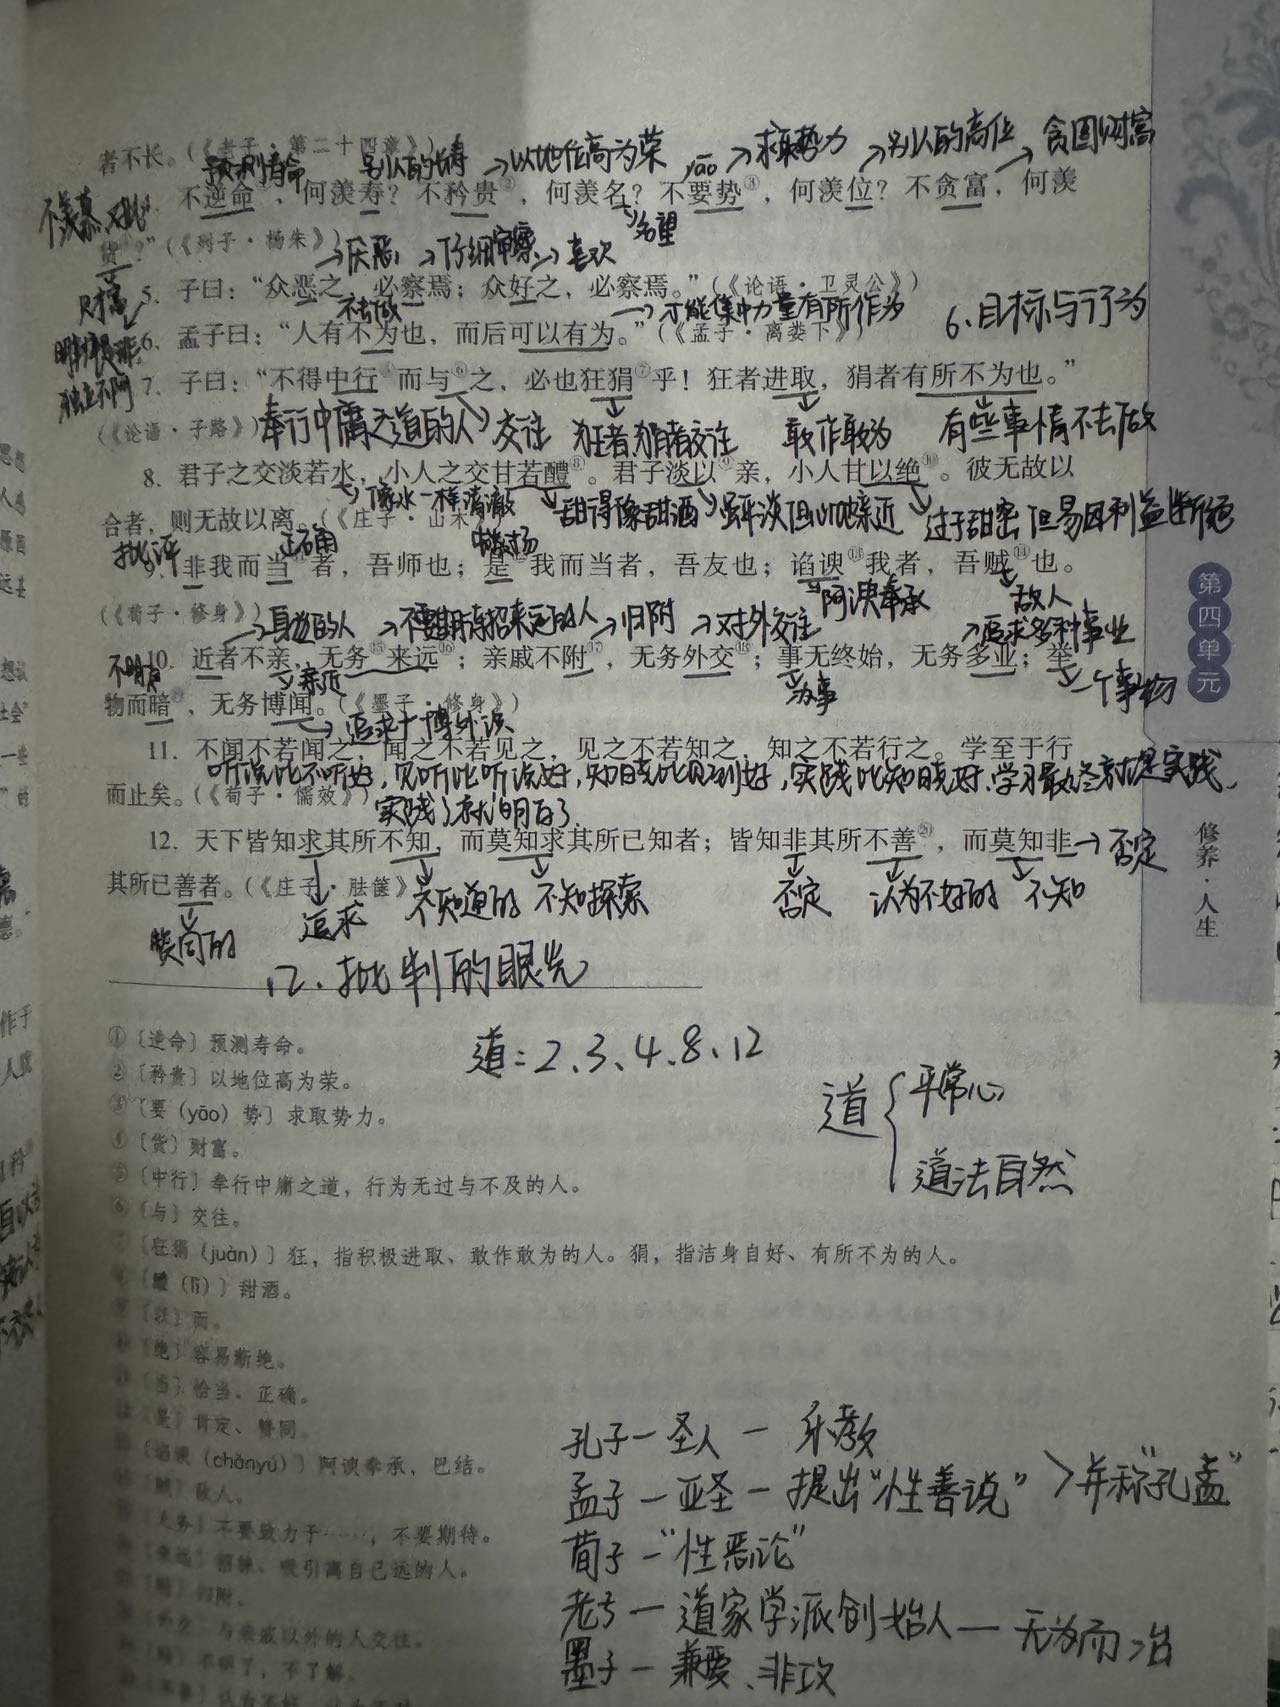 者不长。（《老子·第二十四章》）
预测寿命 别人的长寿 →以地位高为荣 yāo →求取势力 →别人的高位 →贪图财富
不逆命①，何羡寿？不矜贵②，何羡名？不要势③，何羡位？不贪富，何羡
不羡慕
货④？”（《列子·杨朱》）
→厌恶 →仔细审察 →喜欢 名望
5. 子曰：“众恶之，必察焉；众好之，必察焉。”（《论语·卫灵公》）
财富 不去做 →才能集中力量有所作为 6、目标与行为
6. 孟子曰：“人有不为也，而后可以有为。”（《孟子·离娄下》）
明辨是非
独立不阿
7. 子曰：“不得中行⑤而与⑥之，必也狂狷⑦乎！狂者进取，狷者有所不为也。”
（《论语·子路》）
奉行中庸之道的人 交往 狂者狷者交往 敢作敢为 有些事情不去做
8. 君子之交淡若水，小人之交甘若醴⑧。君子淡以⑨亲，小人甘以绝⑩。彼无故以
像水一样清澈 甜得像甜酒 虽平淡但以此亲近 过于甜密但易因利益断绝
合者，则无故以离。（《庄子·山木》）
批评 正确
9. 非我而当⑪者，吾师也；是⑫我而当者，吾友也；谄谀⑬我者，吾贼⑭也。
阿谀奉承 敌人
（《荀子·修身》）
→身边的人 →归附 →对外交往 →追求多种事业
10. 近者不亲，无务⑮来远⑯；亲戚不附⑰，无务外交⑱；事无终始，无务多业；举
不明白 亲近 办事 一个事物
物而暗⑲，无务博闻。（《墨子·修身》）
→追求广博外识
11. 不闻不若闻之，闻之不若见之，见之不若知之，知之不若行之。学至于行
听说比不听好，见听比听说好，知晓比见到好，实践比知晓好、学习最终就是实践。
而止矣。（《荀子·儒效》）
实践了就明白了
12. 天下皆知求其所不知，而莫知求其所已知者；皆知非其所不善⑳，而莫知非 →否定
其所已善者。（《庄子·胠箧》）
赞同的 追求 不知道的 不知探索 否定 认为不好的 不知
12、批判的眼光
①〔逆命〕预测寿命。
道：2、3、4、8、12
②〔矜贵〕以地位高为荣。
③〔要（yāo）势〕求取势力。
道 平常心
道法自然
④〔货〕财富。
⑤〔中行〕奉行中庸之道，行为无过与不及的人。
⑥〔与〕交往。
⑦〔狂狷（juàn）〕狂，指积极进取、敢作敢为的人。狷，指洁身自好、有所不为的人。
⑧〔醴（lǐ）〕甜酒。
⑨〔以〕而。
⑩〔绝〕容易断绝。
⑪〔当〕恰当、正确。
⑫〔是〕肯定、赞同。
⑬〔谄谀（chǎnyú）〕阿谀奉承，巴结。
⑭〔贼〕敌人。
⑮〔无务〕不要致力于……，不要期待。
⑯〔来远〕招徕、吸引离自己远的人。
⑰〔附〕归附。
⑱〔外交〕与亲戚以外的人交往。
⑲〔暗〕不明了，不了解。
孔子—圣人—乐教
孟子—亚圣—提出“性善说” ＞并称“孔孟”
荀子—“性恶论”
老子—道家学派创始人—无为而治
墨子—兼爱、非攻
第四单元
修养·人生